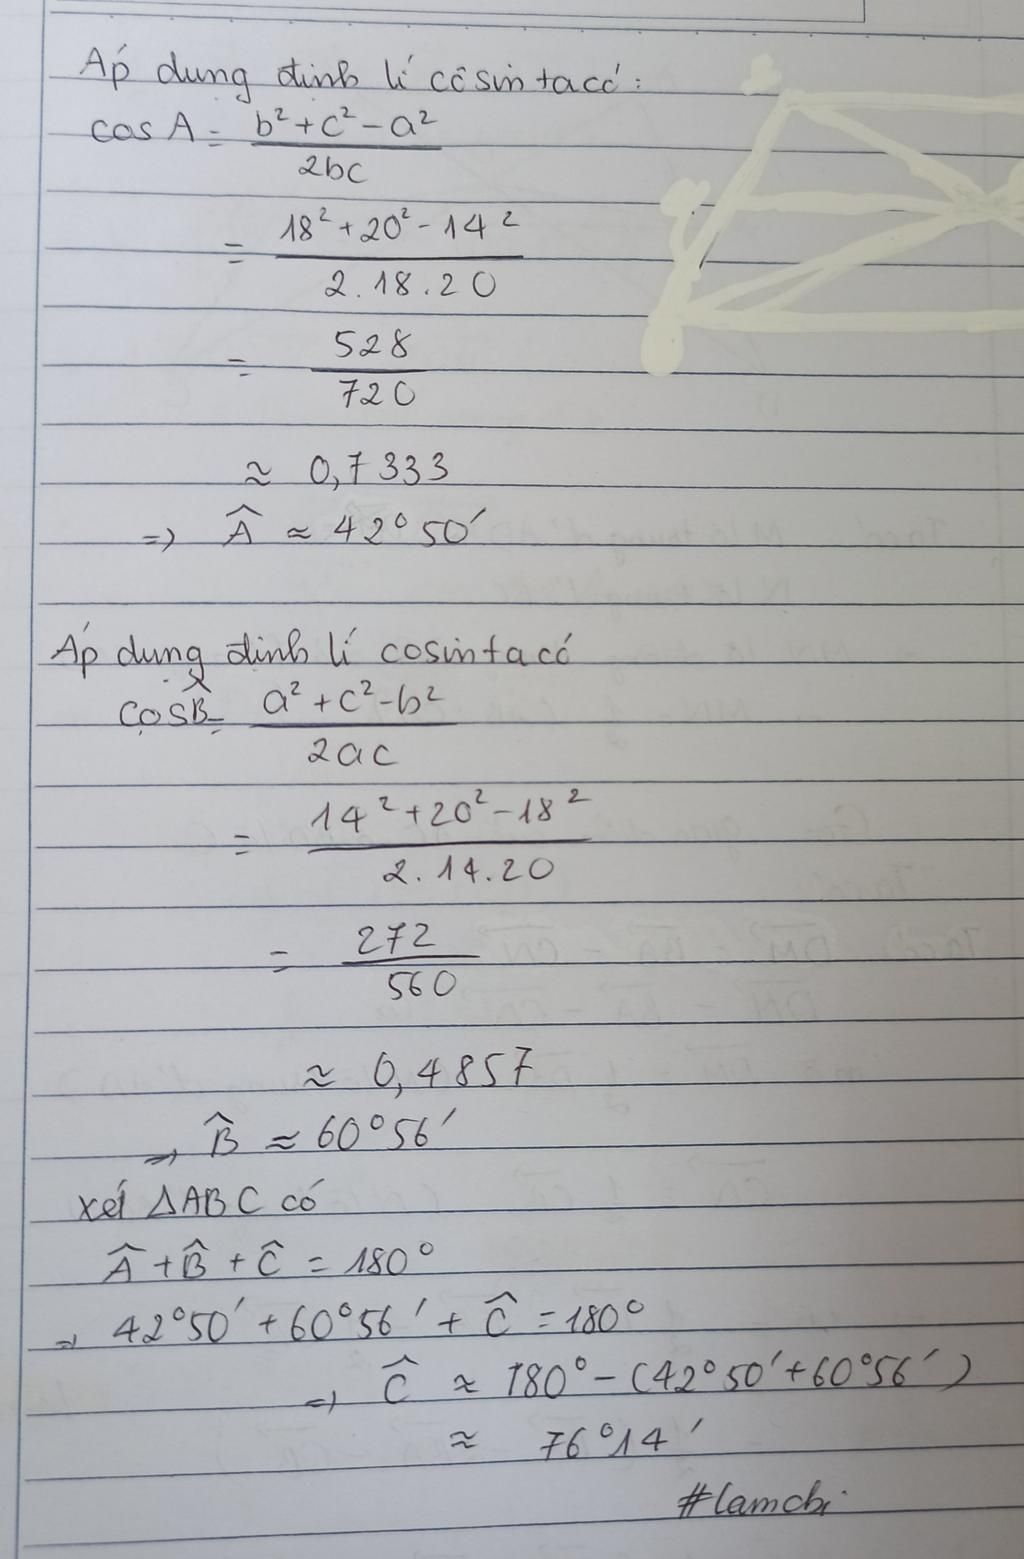 Áp dung định lí côsin ta có:
cos A = b² + c² - a² / 2bc
= 18² + 20² - 14² / 2.18.20
= 528 / 720
≈ 0,7333
=> Â ≈ 42°50'
Áp dụng định lí cosin ta có
cos B̂ = a² + c² - b² / 2ac
= 14² + 20² - 18² / 2.14.20
= 272 / 560
≈ 0,4857
=> B̂ ≈ 60°56'
xét ΔABC có
Â + B̂ + Ĉ = 180°
=> 42°50' + 60°56' + Ĉ = 180°
=> Ĉ ≈ 180° - (42°50' + 60°56')
≈ 76°14'
#lamchi